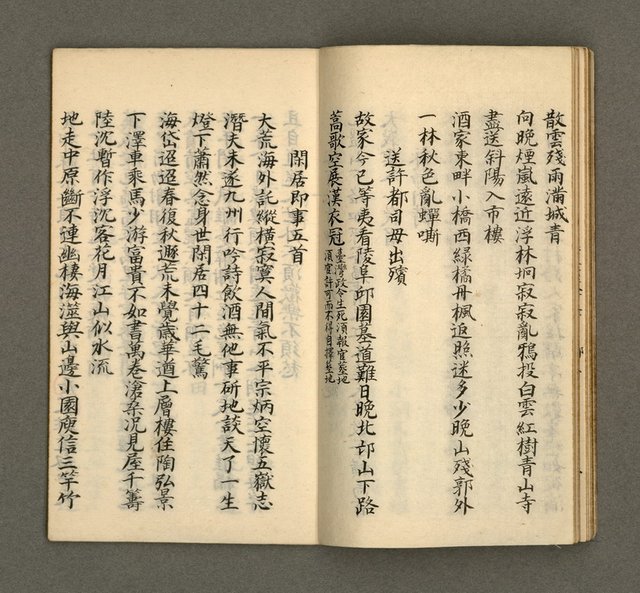 散雲殘雨滿城青
向晚煙嵐遠近浮林坰寂寂亂鴉投白雲紅樹青山寺
盡送斜陽入市樓
酒家東畔小橋西綠橘丹楓返照迷多少晚山殘郭外
一林秋色亂蟬嘶
送許都司母出殯
故家今已等夷看陵阜邱園墓道難日晚北邙山下路
蒿歌空展漢衣冠臺灣政令生死須報官墓地
須官許可而不得自擇墓地
閑居即事五首
大荒海外託縱橫寂寞人間氣不平宗炳空懷五嶽志
潛夫未遂九州行吟詩飲酒無他事斫地談天了一生
燈下蕭然念身世閑居四十二毛驚
海岱迢迢春復秋遯荒未覺歲華遒上層樓住陶弘景
下澤車乘馬少游富貴不如書萬卷滄桑况見屋千籌
陸沉暫作浮沉客花月江山似水流
地走中原斷不連幽棲海澨與山邊小園庾信三竿竹